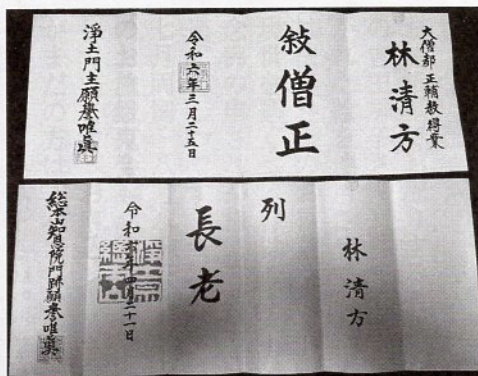 大僧都 正輔教 擬業
林清方
敍僧正
令和六年三月二十五日
淨土門主願譽唯眞
林清方
列
長老
令和六年四月二十一日
総本山知恩院門跡願譽唯眞